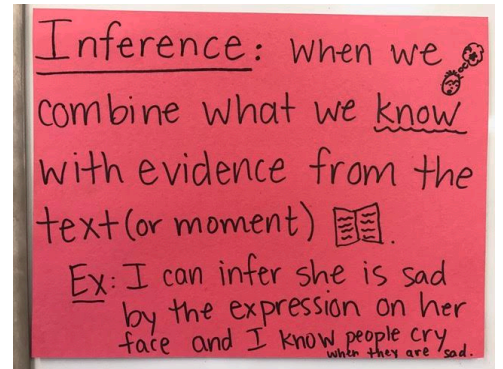 Inference: When we
combine what we know
with evidence from the
text (or moment).
Ex: I can infer she is sad
by the expression on her
face and I know people cry
when they are sad.